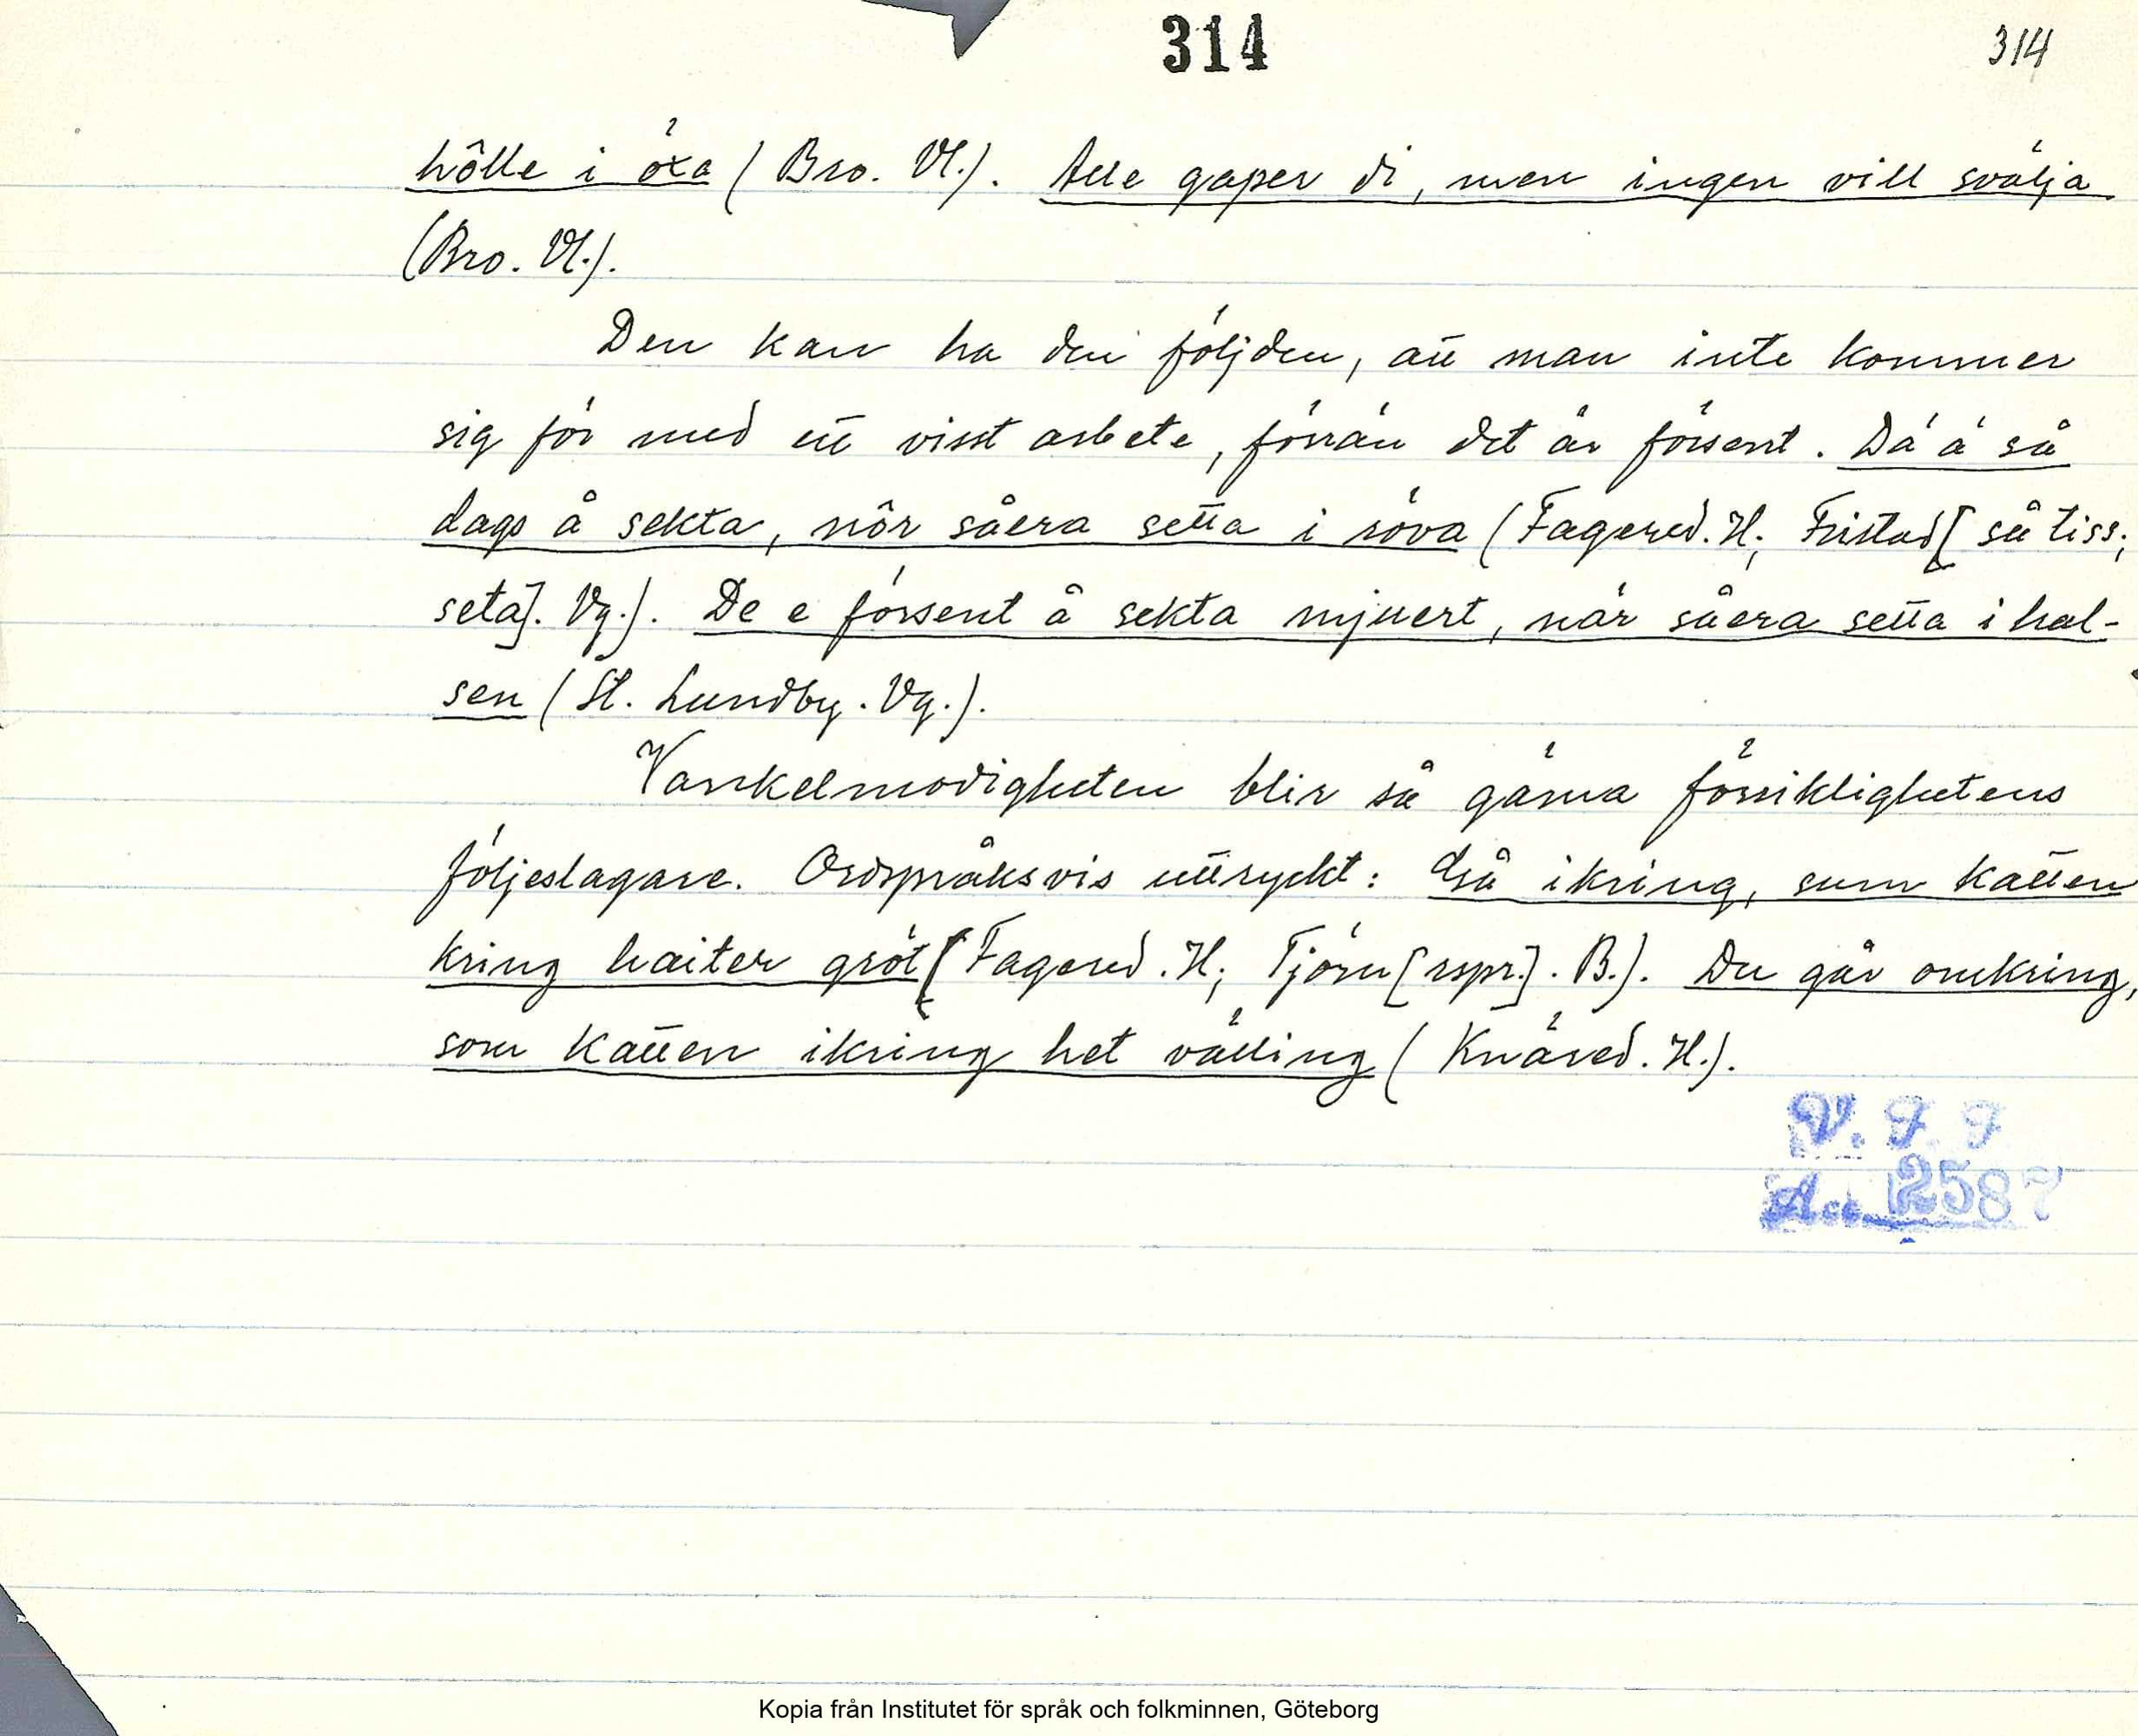 314
314
hôlle i öxa (Bro. Vl.). Alle gaper di, men ingen vill svälja
(Bro. Vl.).
Den kan ha den följden, att man inte kommer
sig för med ett visst arbete, förrän det är försent. Dä ä så
dags å sekta, nôr såera setta i röva (Fagered. H; Fristad [så tiss;
seta]. Vg.). De e försent å sekta mjuert, när såera setta i hal-
sen (St. Lundby. Vg.).
Vankelmodigheten blir så gärna försiktighetens
följeslagare. Ordspråksvis uttryckt: Gå ikring, sum katten
kring haiter gröt (Fagered. H; Tjörn [rspr.]. B.). Du går omkring,
som katten ikring het välling (Knäred. H.).
V. F. F
Acc. 2587
Kopia från Institutet för språk och folkminnen, Göteborg